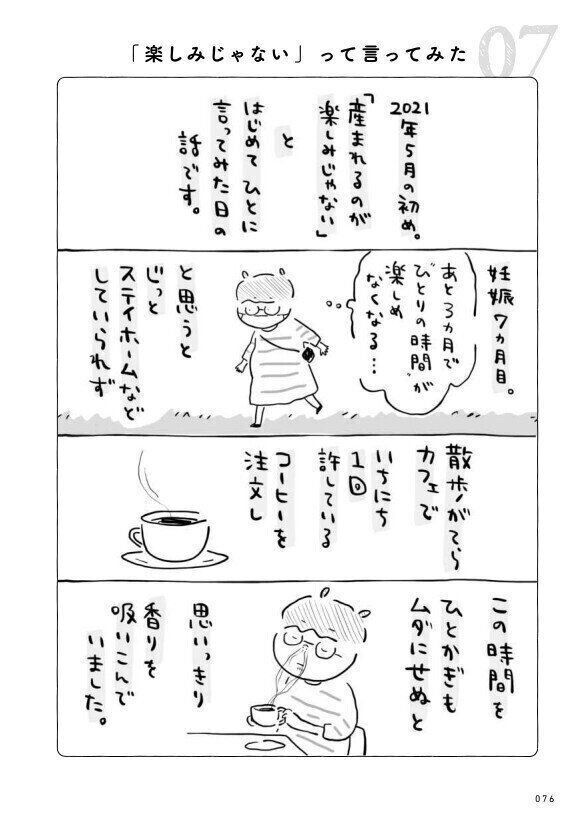 07
「楽しみじゃない」って言ってみた
2021年5月の初め。
「産まれるのが
楽しみじゃない」
と
はじめてひとに
言ってみた日の
話です。
妊娠7ヵ月目。
あと3ヵ月で
"ひとりの時間"が
楽しめ
なくなる…
と思うと
じっと
ステイホームなど
していられず
散歩がてら
カフェで
いちにち
1回
許している
コーヒーを
注文し
この時間を
ひとかぎも
ムダにせぬと
思いっきり
香りを
吸いこんで
いました。
076